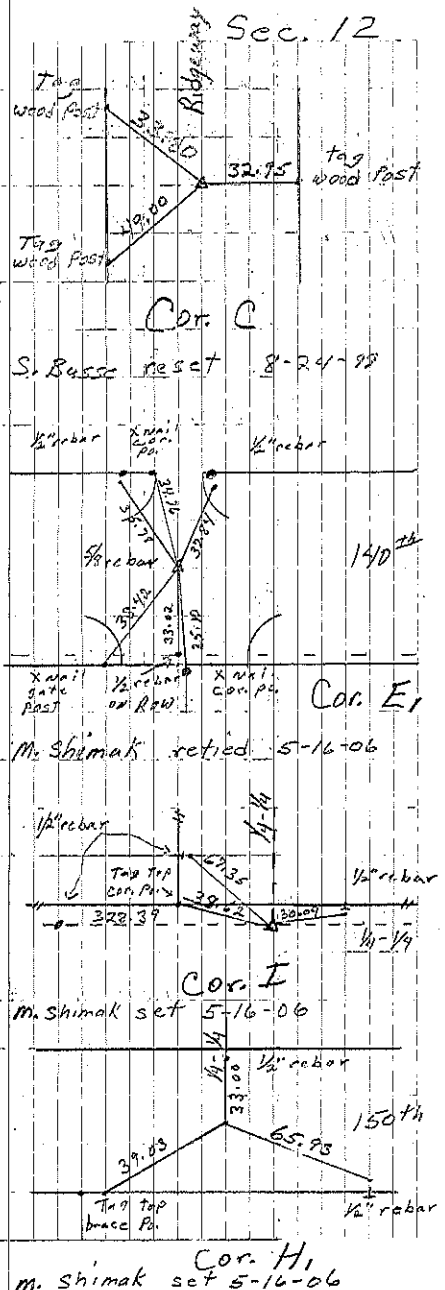 Sec. 12
Ridgeway
Tag
wood Post
32.95
Tag
wood Post
49.00
Tag
wood Post
Cor. C
S. Busse reset 8-24-98
1/2" rebar
X nail
cor. po.
1/2" rebar
32.84
5/8 rebar
140th
38.42
33.02
X nail
gate
post
1/2 rebar
on Row
X nail
cor. po.
Cor. E,
M. Shimak retied 5-16-06
1/2" rebar
1/4-1/4
67.35
Tag top
cor. Po.
38.62
30.09
1/2" rebar
328.39
1/4-1/4
Cor. I
M. Shimak set 5-16-06
1/4-1/4
1/2" rebar
33.00
150th
39.03
65.93
Tag top
brace Po.
1/2" rebar
Cor. H,
M. Shimak set 5-16-06